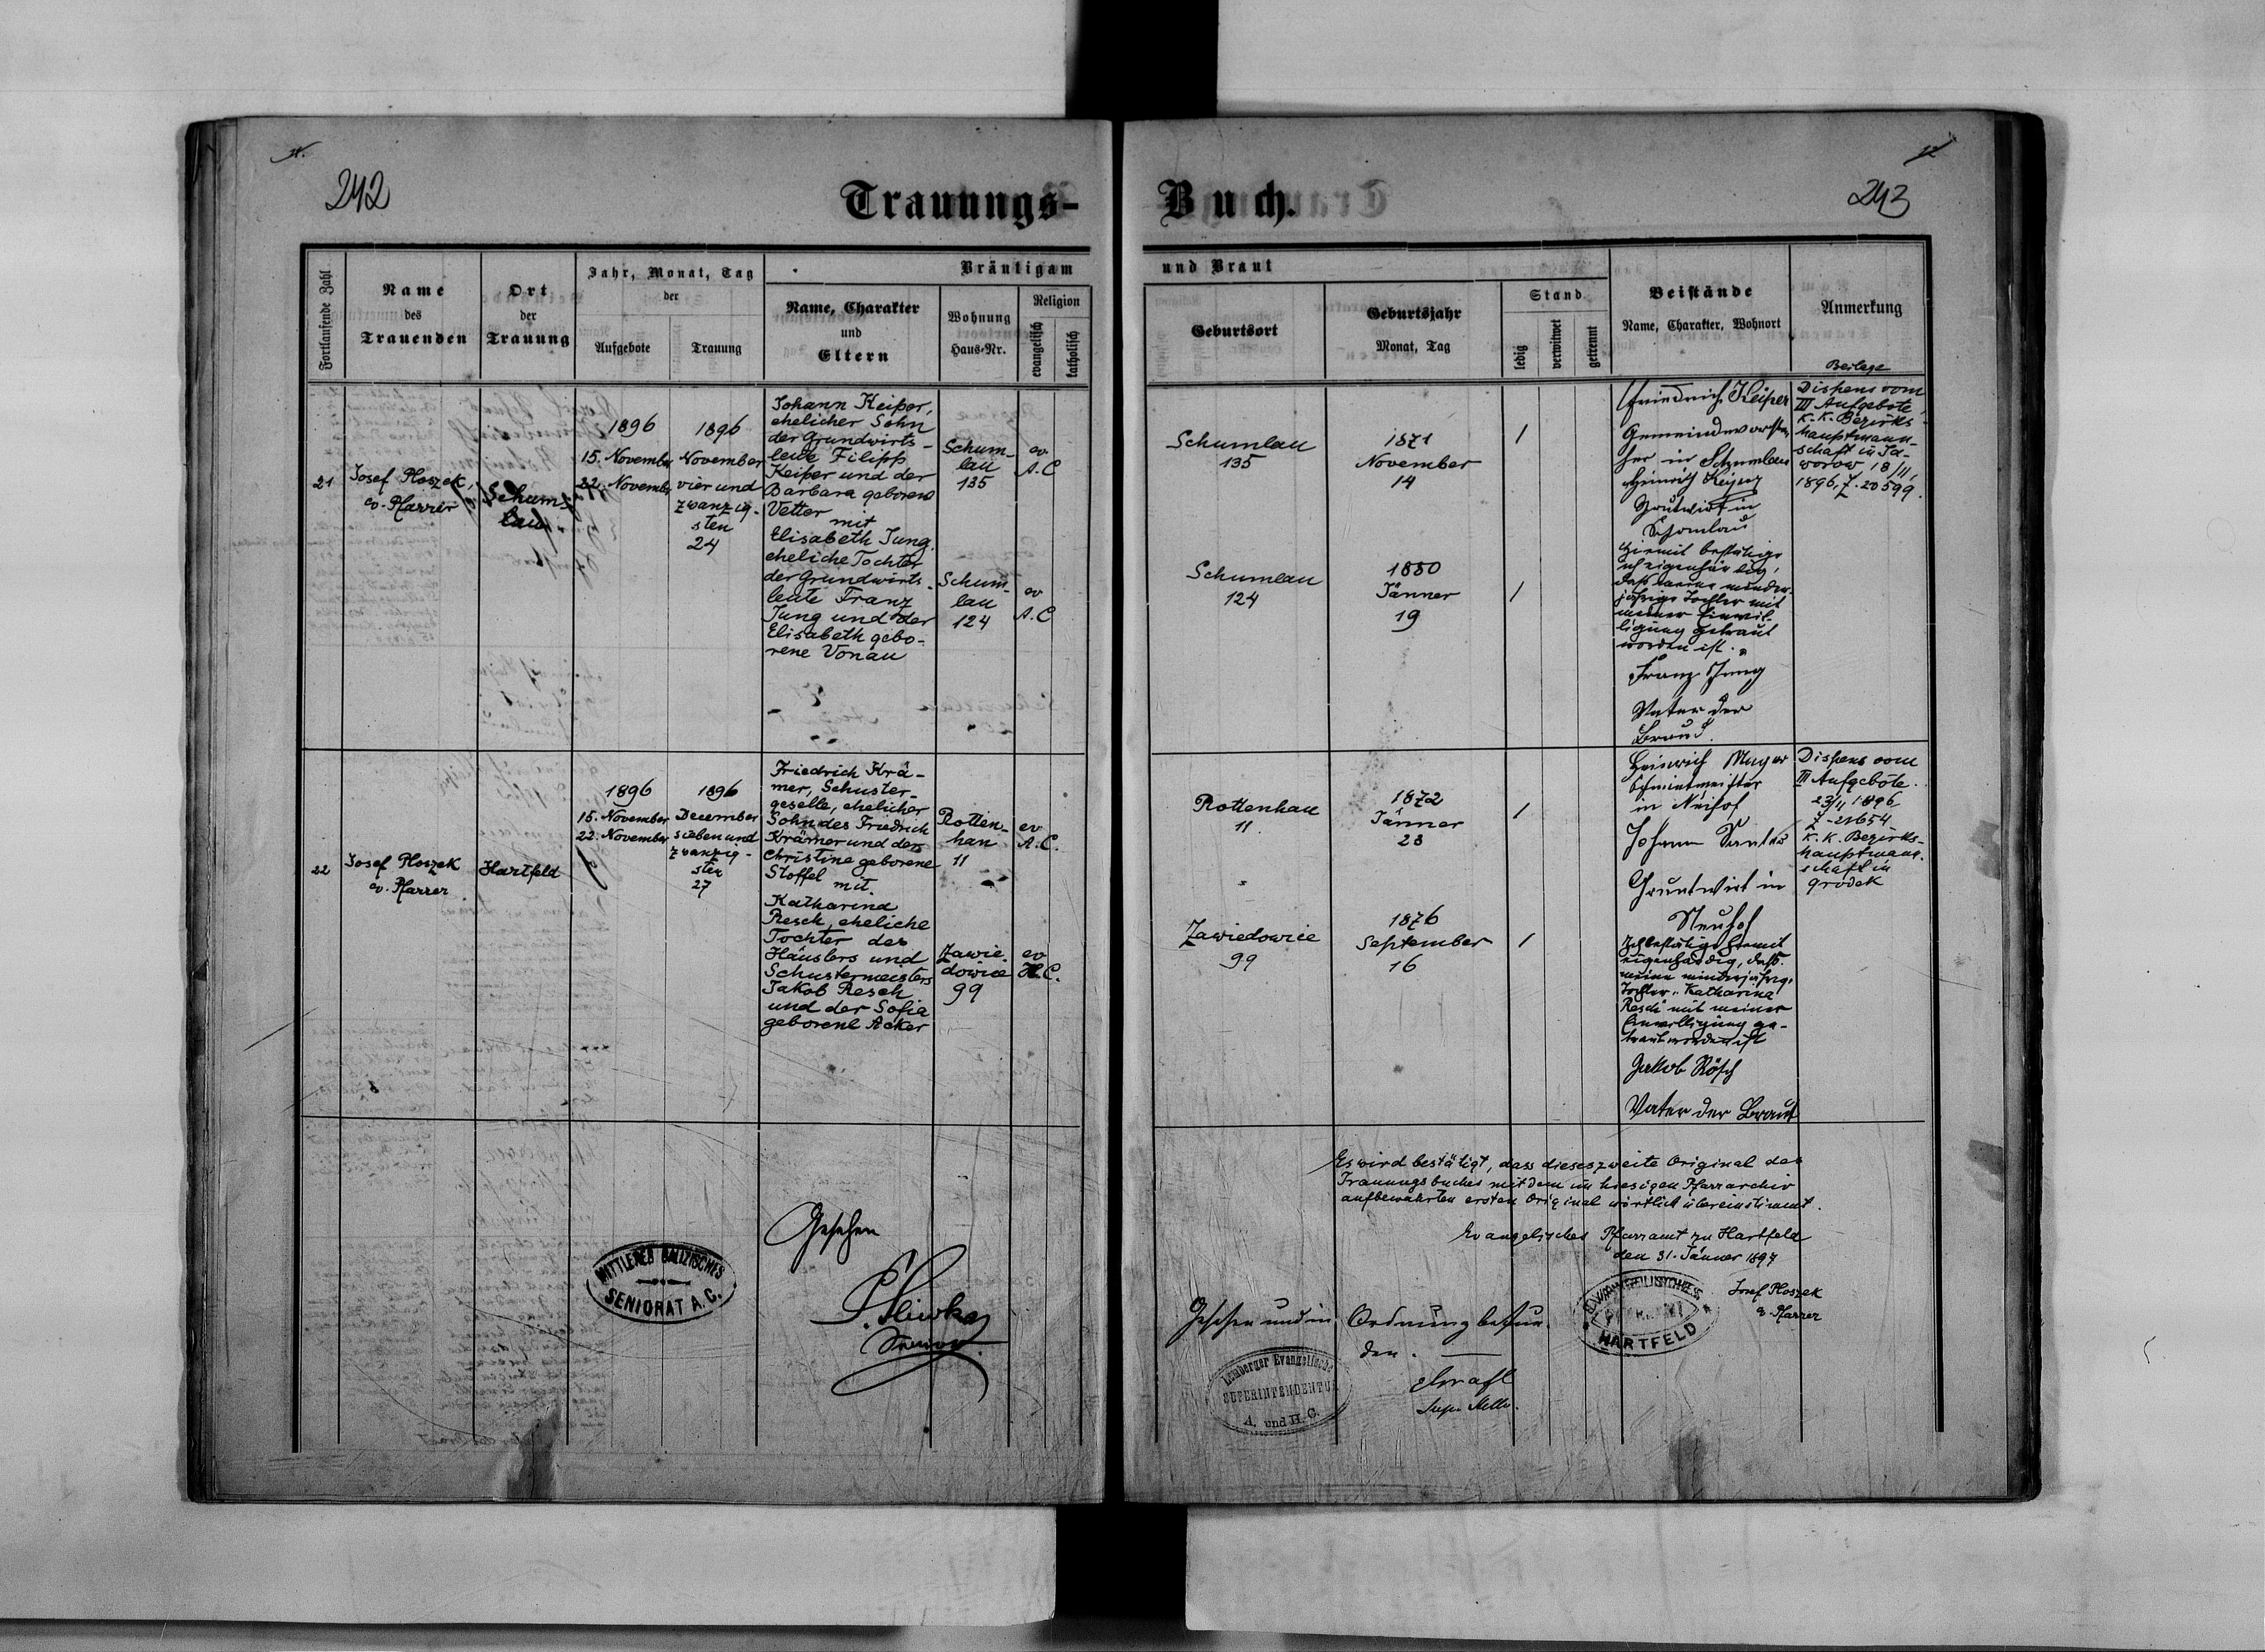 242
Trauungs-
Buch.
243
Fortlaufende Zahl
Name
des
Trauenden
Ort
der
Trauung
Jahr, Monat, Tag
der
Aufgebote
Trauung
Bräutigam
Name, Charakter
und
Eltern
Wohnung
Haus-Nr.
Religion
evangelisch
katholisch
und Braut
Geburtsort
Geburtsjahr
Monat, Tag
Stand
ledig
verwitwet
getrennt
Beistände
Name, Charakter, Wohnort
Anmerkung
21
Josef Ploszek,
ev. Pfarrer
Schum-
lau
1896
15. November
22. November
1896
November
vier und
zwanzig-
sten
24
Johann Keiper,
ehelicher Sohn
der Grundwirts-
leute Filipp
Keiper und der
Barbara geborene
Vetter
mit
Elisabeth Jung
eheliche Tochter
der Grundwirts-
leute Franz
Jung und der
Elisabeth gebo-
rene Vonau
Schum-
lau
135
ev.
A.C
Schum-
lau
124
ev
A.C
Schumlau
135
1871
November
14
/
Schumlau
124
1880
Jänner
19
/
Friedrich Keiper
Gemeindevorste-
her in Schumlau
Heinrich
in
Schomlau
Hiermit bestätige
ich eigenhändig,
daß meine minder-
jährige Tochter mit
meiner Einwil-
ligung getraut
worden ist.
Franz Jung
Vater der
Braud.
Beilage
Dispens vom
III Aufgebote,
K. K. Bezirks-
hauptmann-
schaft in Ja-
worow 18/11,
1896, Z. 20599.
22
Josef Ploszek
ev. Pfarrer
Hartfeld
1896
15. November
22. November
1896
December
sieben und
zwanzig-
sten
27
Friedrich Krä-
mer, Schuster-
geselle, ehelicher
Sohn des Friedrich
Krämer und der
Christine geborene
Stoffel mit
Katharina
Resch, eheliche
Tochter des
Häuslers und
Schustermeisters
Jakob Resch
und der Sofia
geborene Acker
Rotten-
han
11
ev
A.C.
Zawie-
dowice
99
ev
H.C.
Rottenhan
11
1872
Jänner
23
/
Zawiedowice
99
1876
September
16
/
Heinrich Mayer
in Neihof
Johann
Gruntwirt in
Neuhof
Ich bestätige hiemit
eigenhändig, daß
meine minderjährige
Tochter "Katharina
Resch" mit meiner
Einwilligung ge-
traut worden ist
Jakob Rösch
Vater der Braut
Dispens vom
III Aufgebote.
23/11 1896
Z. 21654
K. K. Bezirks-
hauptmann-
schaft in
Grodek
Es wird bestätigt, dass dieses zweite Original des
Trauungsbuches mit dem im hiesigen Pfarrarchiv
aufbewahrten ersten Original wörtlich übereinstimmt.
Evangelisches Pfarramt zu Hartfeld
den 31. Jänner 1897
Josef Ploszek
ev. Pfarrer
HARTFELD
Gesehen
MITTLERES GALIZISCHES
SENIORAT A. C.
Senior.
Gesehen und in Ordnung befun-
den.
Lemberger Evangelische
SUPERINTENDENTUR
A. und H. C.